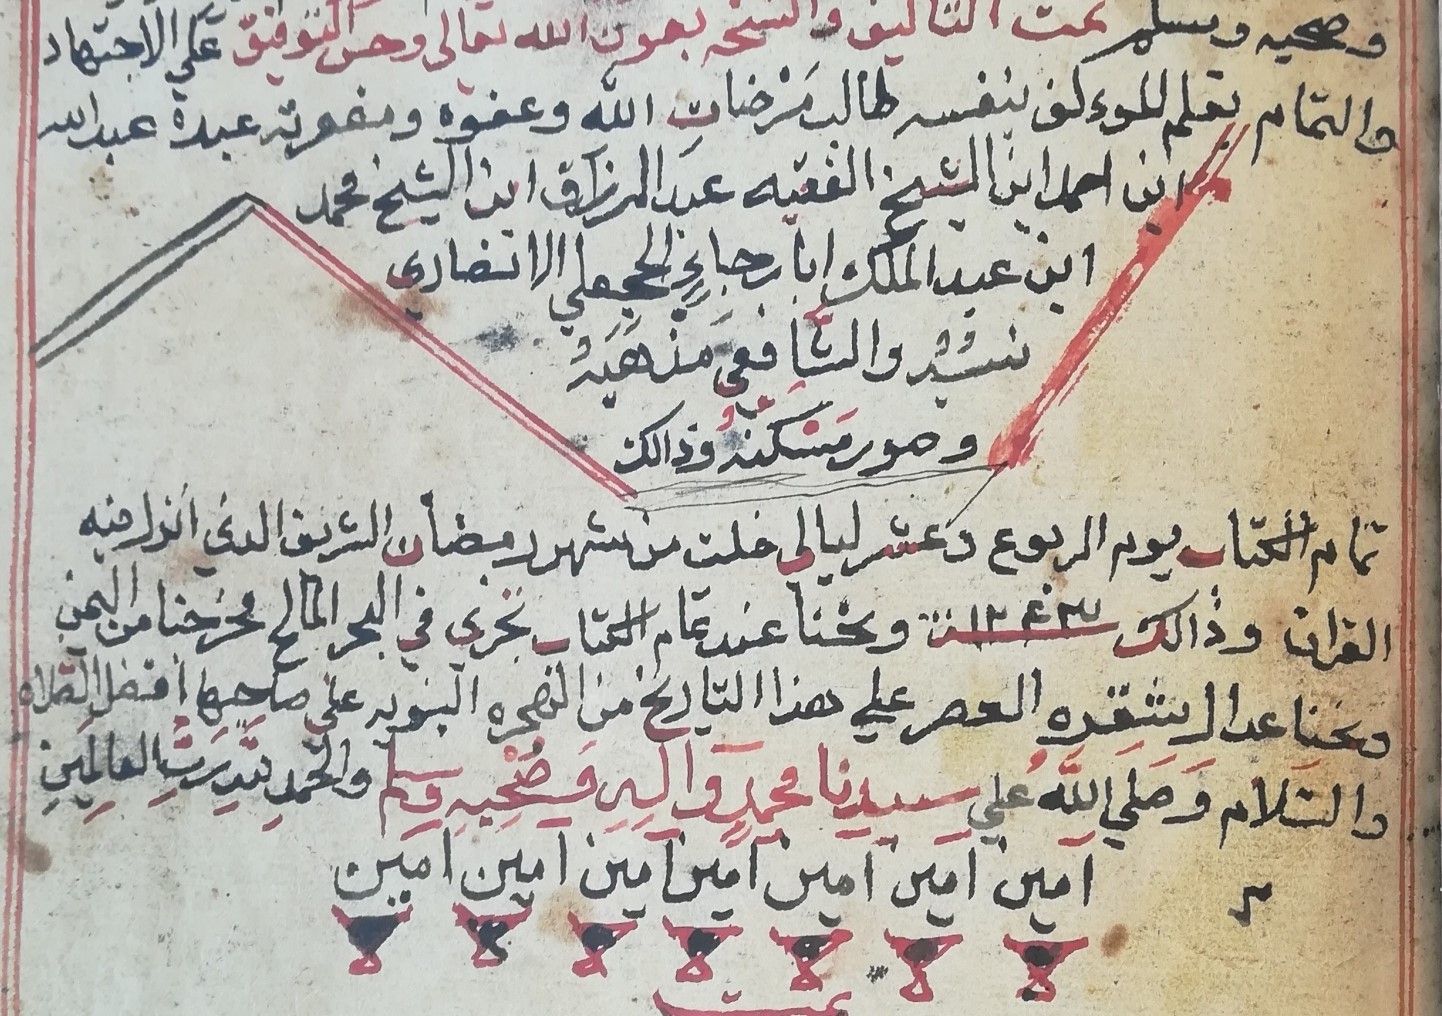 وصحبه وسلم تمت التأليف والنسخه بعون الله تعالى وحسن التوفيق علي الاجتهاد
والتمام بقلم المؤلف بنفسه طالب مَرْضاتِ الله وعفوه ومغفرته عبده عبدالله
ابن احمد ابن الشيخ الفقيه عبد الرزاق ابن الشيخ محمد
ابن عبد الملك ابا رجباءٍ الانصاري
والشافعي مذهبهُ
وصور مسكنهُ وذالك
تمام الكتاب يوم الربوع وعشر ليالي خلت من شهر رمضان الشريف الذي انزل فيه
القران وذالك ونحنا عند تمام الكتاب نجري في البحر المالح مخرجنا من اليمن
ونحنا العصر علي هذا التاريخ من الهجره النبويه علي صاحبها افضل الصلاه
والسلام وَصَلي اللّه علي سيدنا محمدٍ وَالِهِ وَصَحْبِهِ وسلم والحمد للّهِ رَبِّ العالمينِ
امين امين امين امين امين امين امين
تمت